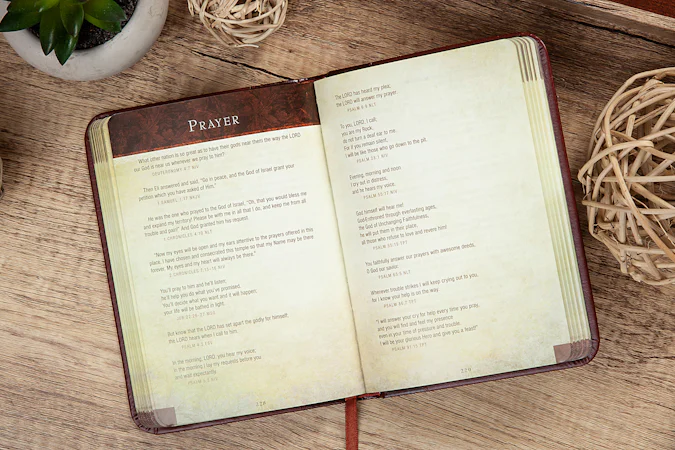 PRAYER
What other nation is so great as to have their gods near them the way the LORD
our God is near us whenever we pray to him?
DEUTERONOMY 4:7 NIV
Then Eli answered and said, "Go in peace, and the God of Israel grant your
petition which you have asked of Him."
1 SAMUEL 1:17 NKJV
He was the one who prayed to the God of Israel, "Oh, that you would bless me
and expand my territory! Please be with me in all that I do, and keep me from all
trouble and pain!" And God granted him his request.
1 CHRONICLES 4:10 NLT
"Now my eyes will be open and my ears attentive to the prayers offered in this
place. I have chosen and consecrated this temple so that my Name may be there
forever. My eyes and my heart will always be there."
2 CHRONICLES 7:15-16 NIV
You'll pray to him and he'll listen;
he'll help you do what you've promised.
You'll decide what you want and it will happen;
your life will be bathed in light.
JOB 22:27
But know that the LORD has set apart the godly for himself;
the LORD hears when I call to him.
PSALM 4:3
In the morning, LORD, you hear my voice;
in the morning I lay my requests before you
and wait expectantly.
PSALM 5:3 NIV
228
The LORD has heard my plea;
the LORD will answer my prayer.
PSALM 6:9 NLT
To you, LORD, I call;
you are my Rock,
do not turn a deaf ear to me.
For if you remain silent,
I will be like those who go down to the pit.
PSALM 28:1 NIV
Evening, morning and noon
I cry out in distress,
and he hears my voice.
PSALM 55:17 NIV
God himself will hear me!
God-Enthroned through everlasting ages,
the God of Unchanging Faithfulness,
he will put them in their place,
all those who refuse to love and revere him!
PSALM 55:19 TPT
You faithfully answer our prayers with awesome deeds,
O God our savior.
PSALM 65:5 NLT
Whenever trouble strikes I will keep crying out to you,
for I know your help is on the way.
PSALM 86:7 TPT
"I will answer your cry for help every time you pray,
and you will find and feel my presence
even in your time of pressure and trouble.
I will be your glorious Hero and give you a feast!"
PSALM 91:15 TPT
229